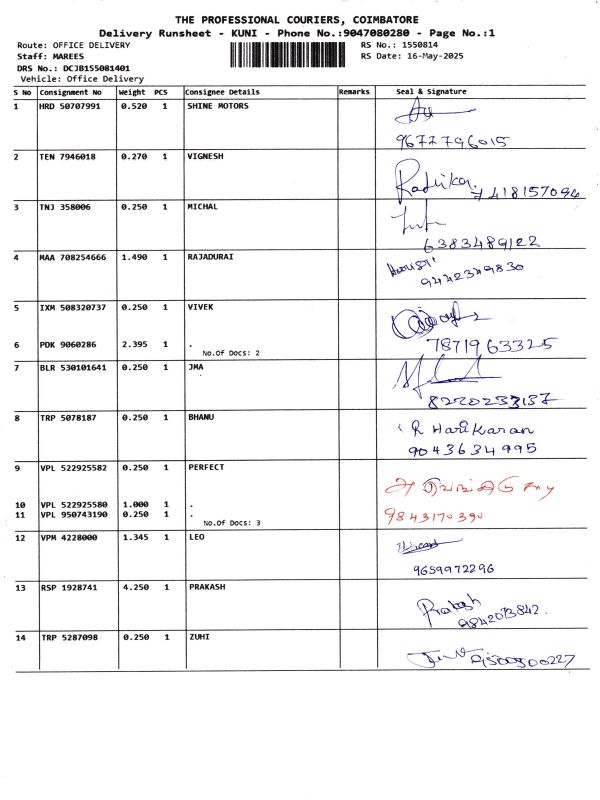 THE PROFESSIONAL COURIERS, COIMBATORE
Delivery Runsheet - KUNI - Phone No.:9047080280 - Page No.:1
Route: OFFICE DELIVERY RS No.: 1550814
Staff: MAREES RS Date: 16-May-2025
DRS No.: DCJB155081401
Vehicle: Office Delivery
S No Consignment No Weight PCS Consignee Details Remarks Seal & Signature
1 HRD 50707991 0.520 1 SHINE MOTORS
9677796015
2 TEN 7946018 0.270 1 VIGNESH
Radhika 7418157094
3 TNJ 358006 0.250 1 MICHAL
6383489122
4 MAA 708254666 1.490 1 RAJADURAI
9442349830
5 IXM 508320737 0.250 1 VIVEK
6 PDK 9060286 2.395 1 .
No.Of Docs: 2
7871963325
7 BLR 530101641 0.250 1 JMA
8220233137
8 TRP 5078187 0.250 1 BHANU
R Harikaran
9043634995
9 VPL 522925582 0.250 1 PERFECT
10 VPL 522925580 1.000 1 .
11 VPL 950743190 0.250 1 .
No.Of Docs: 3
9843170390
12 VPM 4228000 1.345 1 LEO
9659972296
13 RSP 1928741 4.250 1 PRAKASH
Prakash
9842073842
14 TRP 5287098 0.250 1 ZUHI